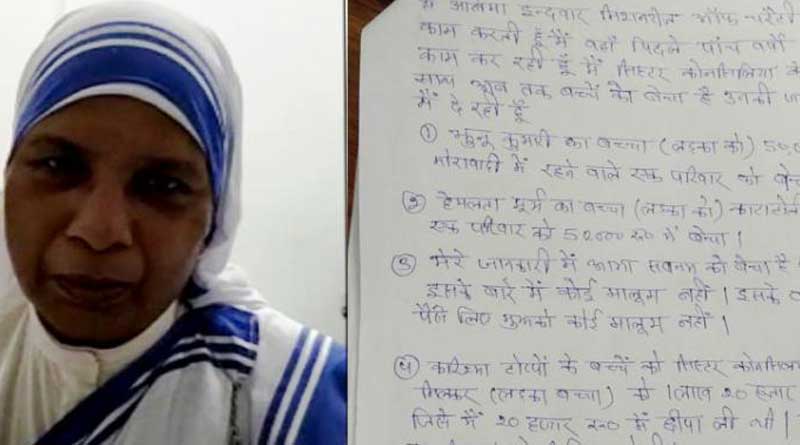 मैं अनिमा इन्दवार मिशनरीज ऑफ चैरिटी
काम करती हूँ मैं वहाँ पिछले पांच वर्षों
काम कर रही हूँ मैं सिस्टर कोनसिलिया के
साथ अब तक बच्चें को बेचा है उनकी
में दे रही हूँ
① कुमारी का बच्चा (लड़का को) 50,0
मोरावादी में रहने वाले एक परिवार को
② हेमलता मुर्मू का बच्चा (लड़का को) काटाटोली
एक परिवार को 52000 रू० में बेचा ।
③ मेरे जानकारी में को बेचा है
इसके बारे में कोई मालूम नहीं । इसके
पैसे लिए मुझको कोई मालूम नहीं ।
④ करिश्मा टोप्पो के बच्चें को सिस्टर
मिलकर (लड़का बच्चा) को 1लाख 20 हजार
जिसे मैं 20 हजार रू० में ।